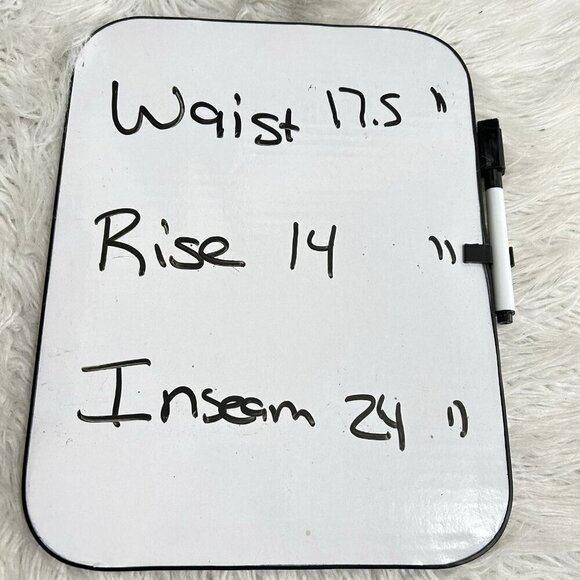 Waist 17.5 "
Rise 14 "
Inseam 24 "